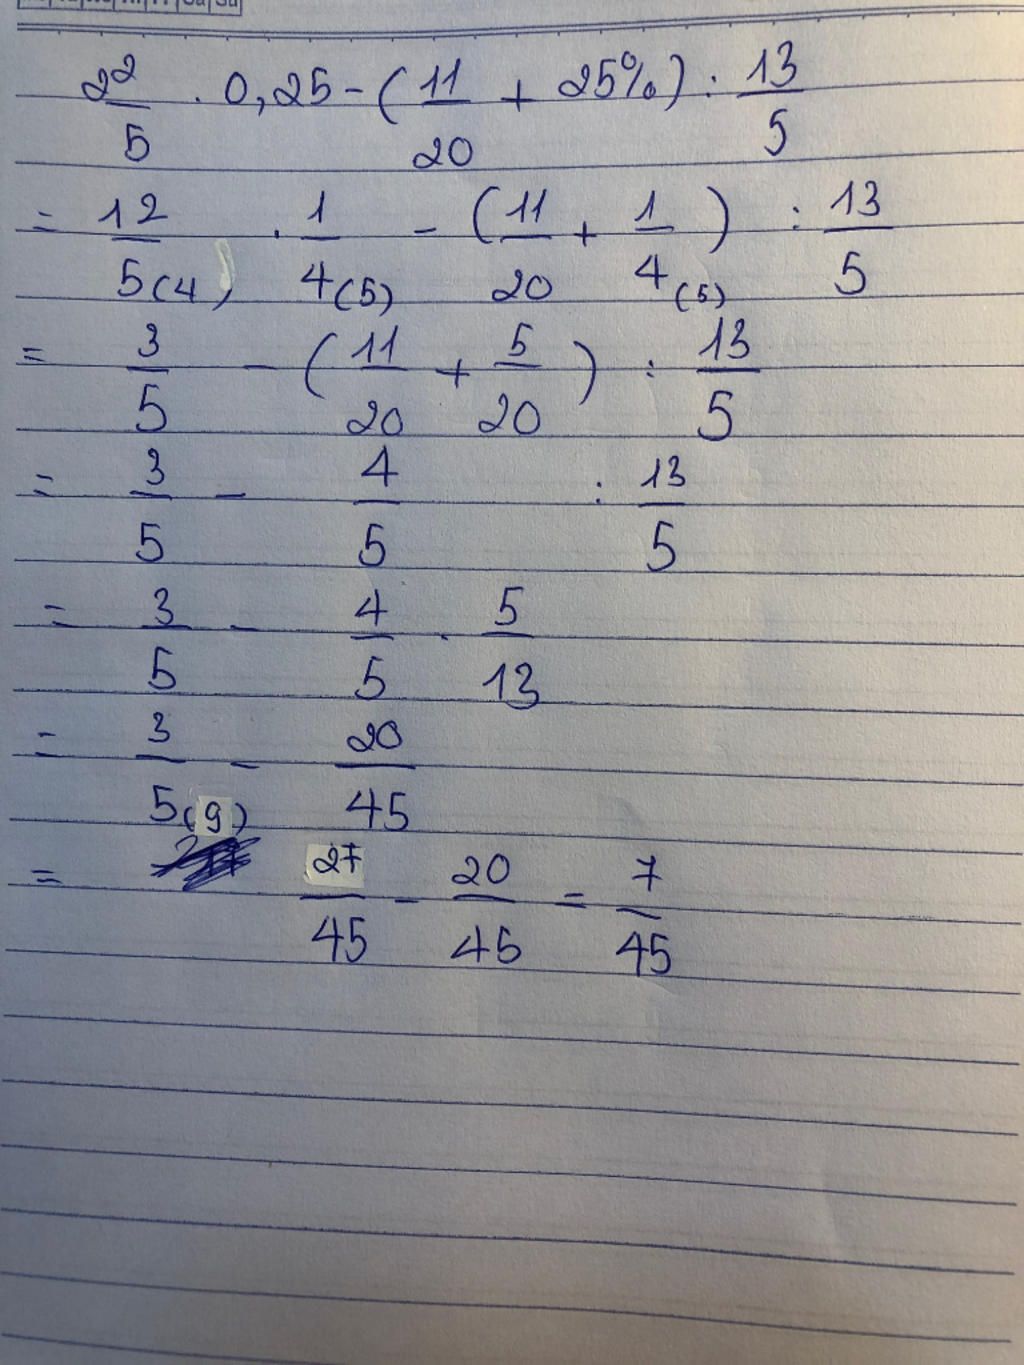 2 2/5 . 0,25 - ( 11/20 + 25% ) : 13/5
= 12/5(4) . 1/4(5) - ( 11/20 + 1/4(5) ) : 13/5
= 3/5 - ( 11/20 + 5/20 ) : 13/5
= 3/5 - 4/5 : 13/5
= 3/5 - 4/5 . 5/13
= 3/5(9) - 20/45
= 27/45 - 20/45 = 7/45